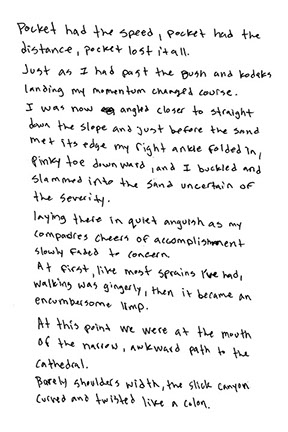 Pocket had the speed, pocket had the
distance, pocket lost it all.
Just as I had past the bush and kodeks
landing my momentum changed course.
I was now angled closer to straight
down the slope and just before the sand
met its edge my right ankle folded in,
pinky toe downward, and I buckled and
slammed into the sand uncertain of
the severity.
laying there in quiet anguish as my
compadres cheers of accomplishment
slowly faded to concern.
At first, like most sprains I've had,
walking was gingerly, then it became an
encumbersome limp.
At this point we were at the mouth
of the narrow, awkward path to the
cathedral.
Barely shoulders width, the slick canyon
curved and twisted like a colon.